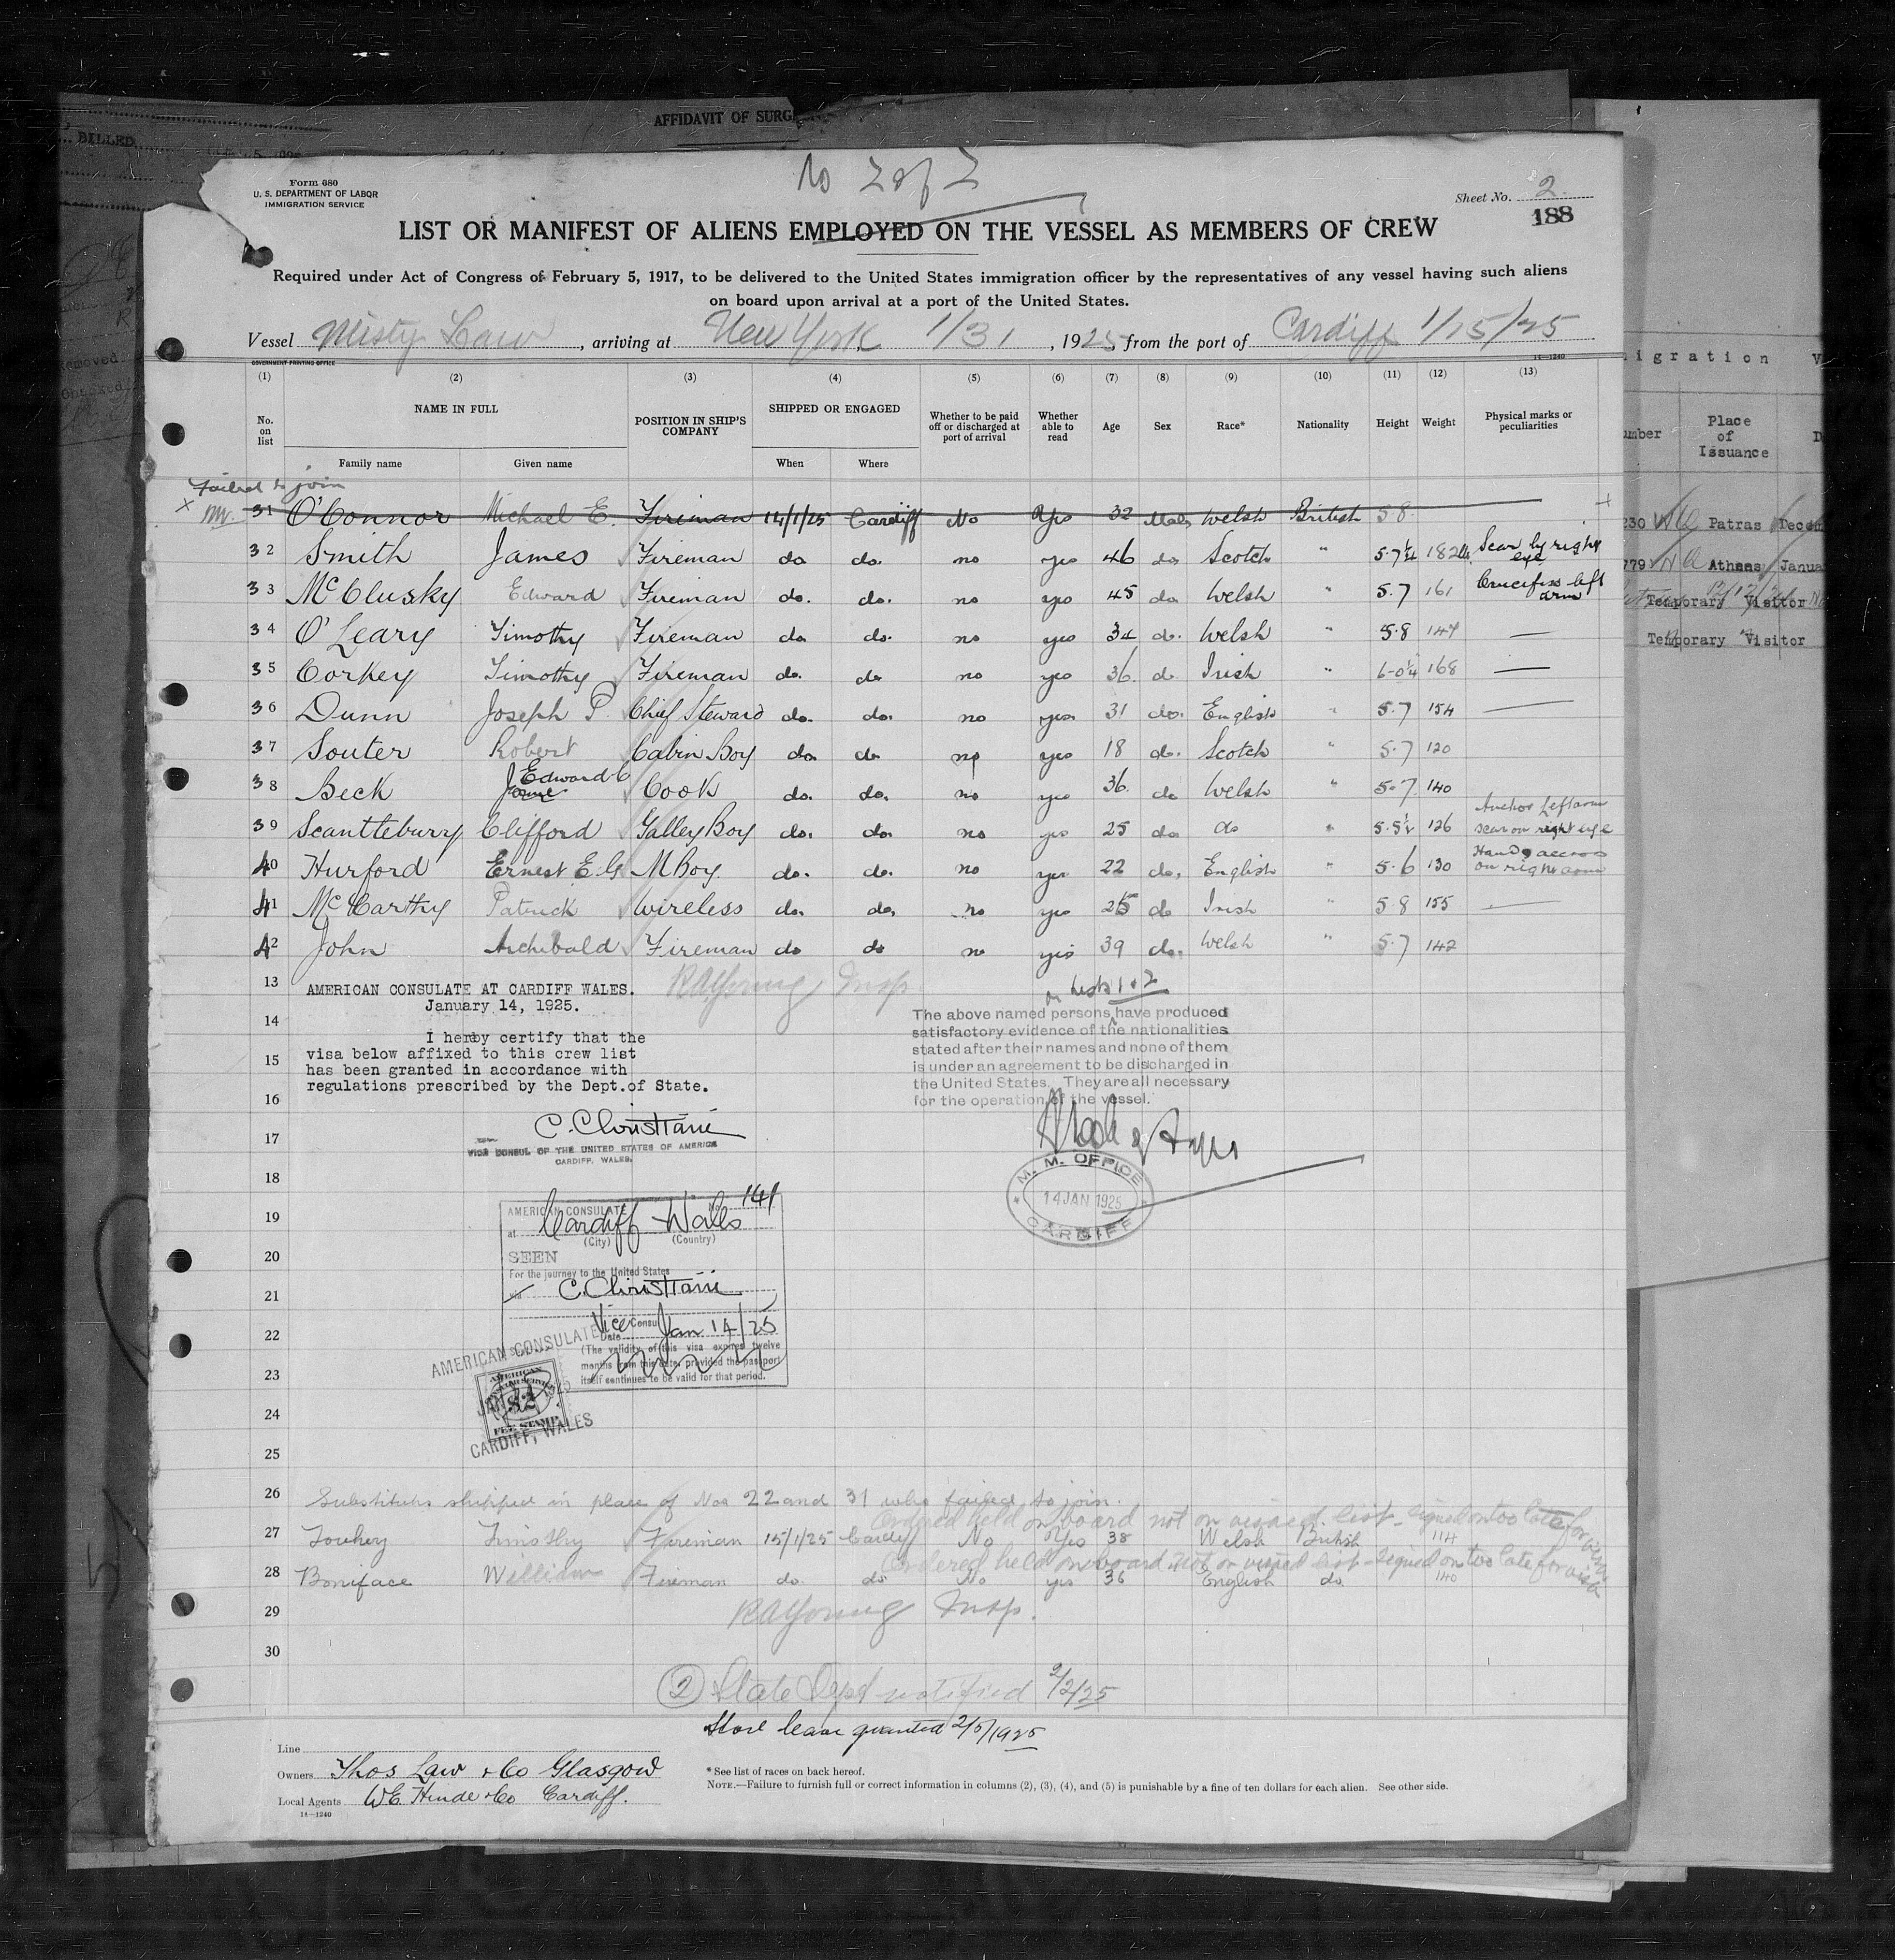 BILLED
AFFIDAVIT OF SURG
No 2 of 2
Form 680
U. S. DEPARTMENT OF LABOR
IMMIGRATION SERVICE
Sheet No. 2
188
LIST OR MANIFEST OF ALIENS EMPLOYED ON THE VESSEL AS MEMBERS OF CREW
Required under Act of Congress of February 5, 1917, to be delivered to the United States immigration officer by the representatives of any vessel having such aliens
on board upon arrival at a port of the United States.
Vessel Misty Law, arriving at New York 1/31, 1925, from the port of Cardiff 1/15/25
GOVERNMENT PRINTING OFFICE 14—1240
(1) (2) (3) (4) (5) (6) (7) (8) (9) (10) (11) (12) (13)
No. on list NAME IN FULL POSITION IN SHIP'S COMPANY SHIPPED OR ENGAGED Whether to be paid off or discharged at port of arrival Whether able to read Age Sex Race* Nationality Height Weight Physical marks or peculiarities
Family name Given name When Where
Failed to join
31 O'Connor Michael E. Fireman 14/1/25 Cardiff No Yes 32 Male Welsh British 5.8
32 Smith James Fireman do do. no yes 46 do Scotch " 5.7¼ 182 Scar by right eye
33 McClusky Edward Fireman do. do. no yes 45 do Welsh " 5.7 161 Crucifix left arm
34 O'Leary Timothy Fireman do do. no yes 34 do. Welsh " 5.8 147 —
35 Corkey Timothy Fireman do. do no yes 36. do Irish " 6-0¼ 168 —
36 Dunn Joseph P. Chief Steward do. do. no yes 31 do. English " 5.7 154 —
37 Souter Robert Cabin Boy do. do no yes 18 do. Scotch " 5.7 120
38 Beck Edward C Cook do. do. no yes 36. do Welsh " 5.7. 140
39 Scantlebury Clifford Galley Boy do. do. no yes 25 do do " 5.5½ 126 Anchor left arm scar on right eye
40 Hurford Ernest E.G M Boy. do. do. no yes 22 do. English " 5.6 130 Hands across on right arm
41 McCarthy Patrick Wireless do. do. no yes 25 do Irish " 5.8 155 —
42 John Archibald Fireman do do no yes 39 do. Welsh " 5.7 142
13
RAYoung Insp.
AMERICAN CONSULATE AT CARDIFF WALES.
January 14, 1925.
I hereby certify that the
visa below affixed to this crew list
has been granted in accordance with
regulations prescribed by the Dept.of State.
C. Christiani
VICE CONSUL OF THE UNITED STATES OF AMERICA
CARDIFF, WALES.
on Lists 1 & 2
The above named persons have produced
satisfactory evidence of the nationalities
stated after their names and none of them
is under an agreement to be discharged in
the United States. They are all necessary
for the operation of the vessel.
M. M. OFFICE
14 JAN 1925
CARDIFF
14
15
16
17
18
19
20
21
22
23
24
25
AMERICAN CONSULATE No. 141
at Cardiff Wales
(City) (Country)
SEEN
For the journey to the United States
via C. Christiani
Vice Consul
Date Jan 14/25
(The validity of this visa expires twelve
months from this date, provided the passport
itself continues to be valid for that period.
AMERICAN CONSULATE
AMERICAN
$2
FEE STAMP
CARDIFF, WALES
26 Substitutes shipped in place of Nos 22 and 31 who failed to join.
Ordered held on board not on visaed list - signed on too late for visa
27 Touhey Timothy Fireman 15/1/25 Cardiff No Yes 38 Welsh British 114
Ordered held on board not on visaed list - signed on too late for visa
28 Boniface William Fireman do. do No yes 36 English do. 140
29 RAYoung Insp.
30
(2) State Dept notified 2/2/25
Shore leave granted 2/5/1925
Line
Owners Thos Law & Co Glasgow
Local Agents W.E. Hinde & Co Cardiff.
14—1240
* See list of races on back hereof.
NOTE.—Failure to furnish full or correct information in columns (2), (3), (4), and (5) is punishable by a fine of ten dollars for each alien. See other side.
igration V
umber Place of Issuance D
230 Patras Decem
779 Athens Janua
Temporary Visitor
Temporary Visitor